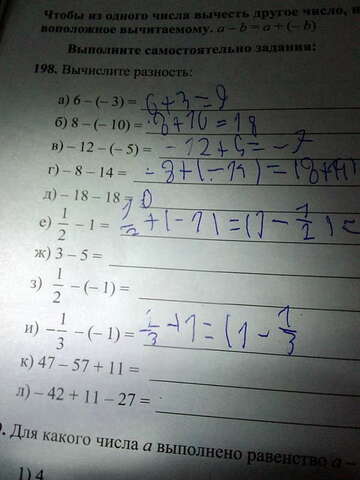 Чтобы из одного числа вычесть другое число,
воположное вычитаемому. a – b = a + (– b)
Выполните самостоятельно задания:
198. Вычислите разность:
а) 6 – (– 3) = 6+3=9
б) 8 – (– 10) = 8+10=18
в) – 12 – (– 5) = -12+5=-7
г) – 8 – 14 = -8+(-14)=(8+14)
д) – 18 – 18 = 0
е) 1/2 – 1 = 1/2+(-1)=(1-1/2)
ж) 3 – 5 =
з) 1/2 – (– 1) =
и) – 1/3 – (– 1) = 1/3+1=(1-1/3
к) 47 – 57 + 11 =
л) – 42 + 11 – 27 =
Для какого числа a выполнено равенство a –
1) 4